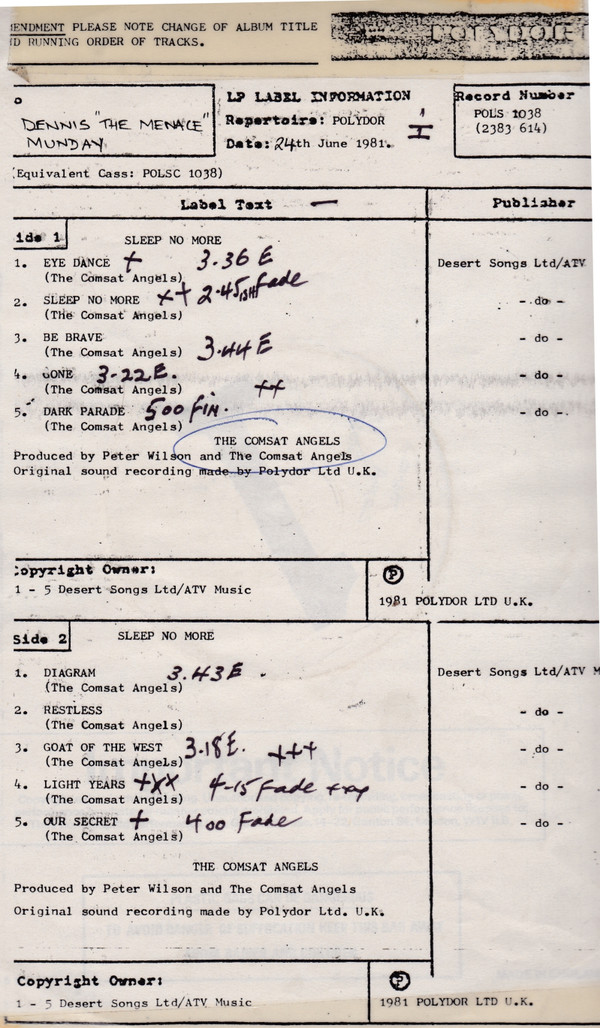 ENDMENT PLEASE NOTE CHANGE OF ALBUM TITLE
ND RUNNING ORDER OF TRACKS.
POLYDOR
o
DENNIS "THE MENACE"
MUNDAY
LP LABEL INFORMATION
Repertoire: POLYDOR
Date: 24th June 1981.
Record Number
POLS 1038
(2383 614)
(Equivalent Cass: POLSC 1038)
Label Text
Publisher
ide 1
SLEEP NO MORE
1. EYE DANCE + 3.36 E
(The Comsat Angels)
Desert Songs Ltd/ATV
2. SLEEP NO MORE ++ 2.45 fade
(The Comsat Angels)
- do -
3. BE BRAVE
(The Comsat Angels) 3.44 E
- do -
4. GONE 3-22E.
(The Comsat Angels) ++
- do -
5. DARK PARADE 500 fin.
(The Comsat Angels)
- do -
THE COMSAT ANGELS
Produced by Peter Wilson and The Comsat Angels
Original sound recording made by Polydor Ltd U.K.
Copyright Owner:
1 - 5 Desert Songs Ltd/ATV Music
Ⓟ
1981 POLYDOR LTD U.K.
Side 2
SLEEP NO MORE
1. DIAGRAM 3.43E .
(The Comsat Angels)
Desert Songs Ltd/ATV M
2. RESTLESS
(The Comsat Angels)
- do -
3. GOAT OF THE WEST 3.18E. +++
(The Comsat Angels)
- do -
4. LIGHT YEARS +XX 4-15 Fade
(The Comsat Angels)
- do -
5. OUR SECRET + 400 Fade
(The Comsat Angels)
- do -
THE COMSAT ANGELS
Produced by Peter Wilson and The Comsat Angels
Original sound recording made by Polydor Ltd. U.K.
Copyright Owner:
1 - 5 Desert Songs Ltd/ATV Music
Ⓟ
1981 POLYDOR LTD U.K.
Important Notice